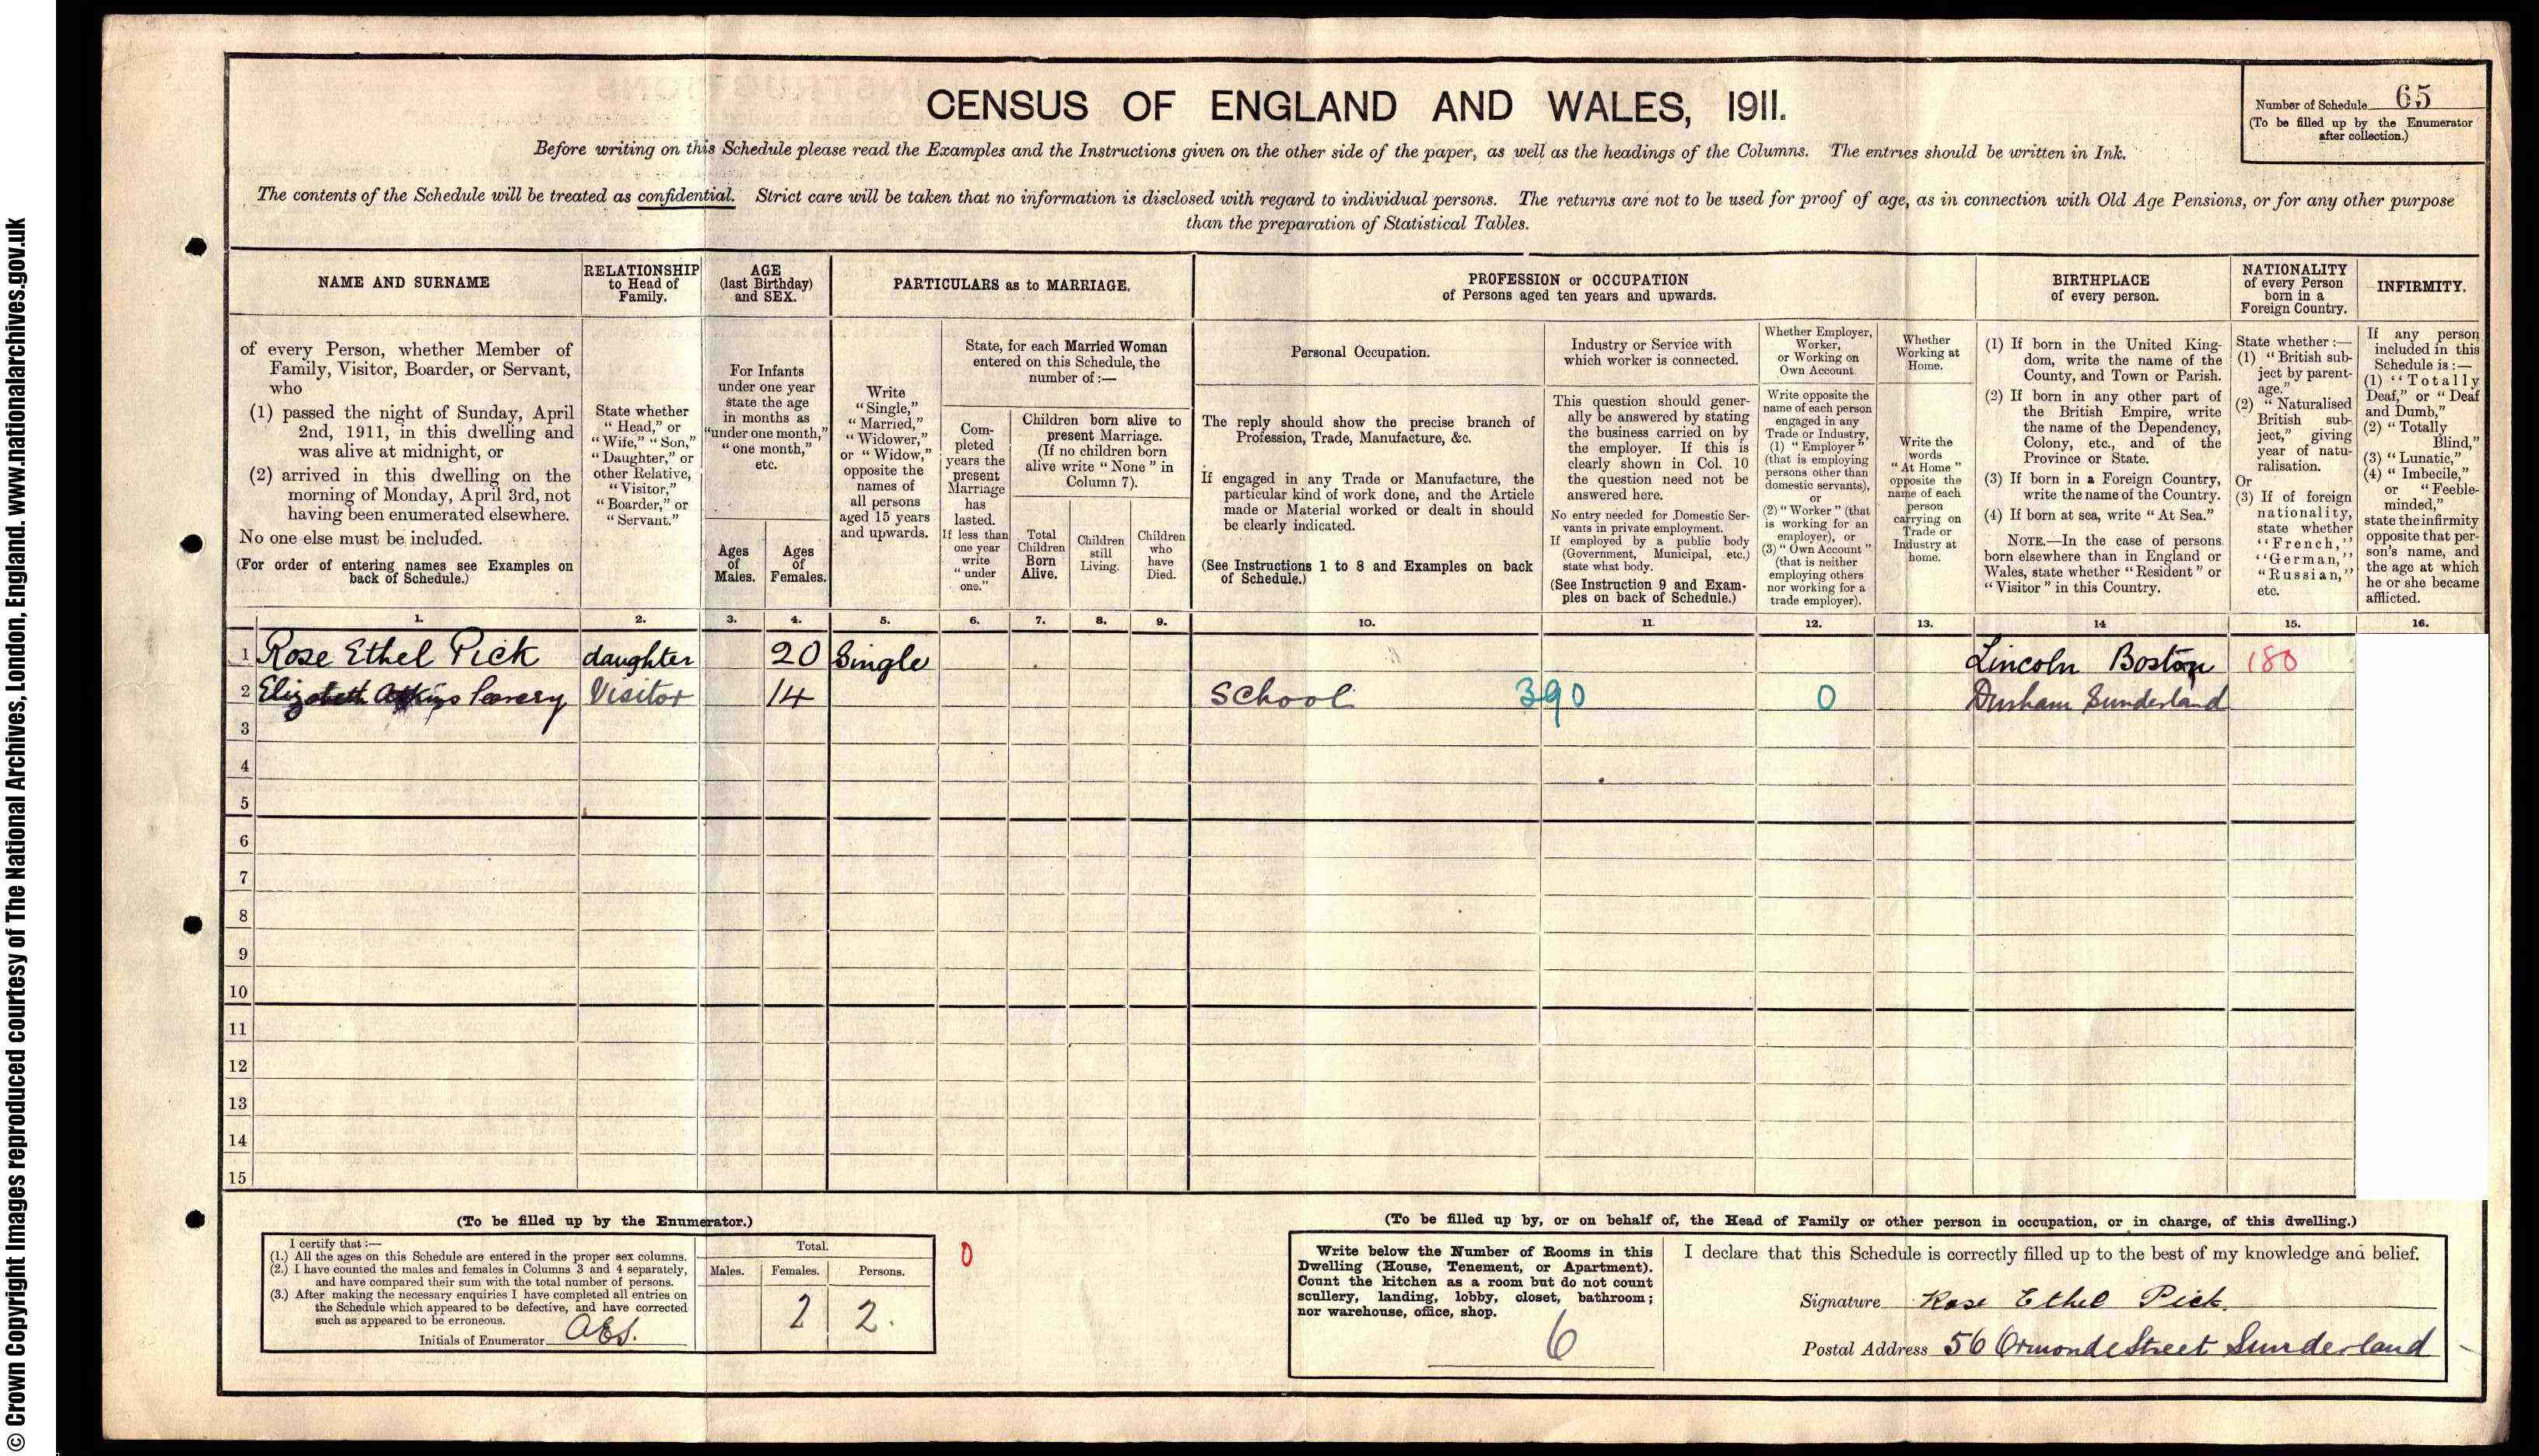 © Crown Copyright Images reproduced courtesy of The National Archives, London, England. www.nationalarchives.gov.uk
CENSUS OF ENGLAND AND WALES, 1911.
Number of Schedule 65
(To be filled up by the Enumerator
after collection.)
Before writing on this Schedule please read the Examples and the Instructions given on the other side of the paper, as well as the headings of the Columns. The entries should be written in Ink.
The contents of the Schedule will be treated as confidential. Strict care will be taken that no information is disclosed with regard to individual persons. The returns are not to be used for proof of age, as in connection with Old Age Pensions, or for any other purpose
than the preparation of Statistical Tables.
NAME AND SURNAME
of every Person, whether Member of
Family, Visitor, Boarder, or Servant,
who
(1) passed the night of Sunday, April
2nd, 1911, in this dwelling and
was alive at midnight, or
(2) arrived in this dwelling on the
morning of Monday, April 3rd, not
having been enumerated elsewhere.
No one else must be included.
(For order of entering names see Examples on
back of Schedule.)
RELATIONSHIP
to Head of
Family.
State whether
"Head," or
"Wife," "Son,"
"Daughter," or
other Relative,
"Visitor,"
"Boarder," or
"Servant."
AGE
(last Birthday)
and SEX.
For Infants
under one year
state the age
in months as
"under one month,"
"one month,"
etc.
Ages
of
Males.
Ages
of
Females.
PARTICULARS as to MARRIAGE.
Write
"Single,"
"Married,"
"Widower,"
or "Widow,"
opposite the
names of
all persons
aged 15 years
and upwards.
State, for each Married Woman
entered on this Schedule, the
number of :—
Com-
pleted
years the
present
Marriage
has
lasted.
If less than
one year
write
"under
one."
Children born alive to
present Marriage.
(If no children born
alive write "None" in
Column 7).
Total
Children
Born
Alive.
Children
still
Living.
Children
who
have
Died.
PROFESSION or OCCUPATION
of Persons aged ten years and upwards.
Personal Occupation.
The reply should show the precise branch of
Profession, Trade, Manufacture, &c.
If engaged in any Trade or Manufacture, the
particular kind of work done, and the Article
made or Material worked or dealt in should
be clearly indicated.
(See Instructions 1 to 8 and Examples on back
of Schedule.)
Industry or Service with
which worker is connected.
This question should gener-
ally be answered by stating
the business carried on by
the employer. If this is
clearly shown in Col. 10
the question need not be
answered here.
No entry needed for Domestic Ser-
vants in private employment.
If employed by a public body
(Government, Municipal, etc.)
state what body.
(See Instruction 9 and Exam-
ples on back of Schedule.)
Whether Employer,
Worker,
or Working on
Own Account
Write opposite the
name of each person
engaged in any
Trade or Industry,
(1) "Employer"
(that is employing
persons other than
domestic servants),
or
(2) "Worker" (that
is working for an
employer), or
(3) "Own Account"
(that is neither
employing others
nor working for a
trade employer).
Whether
Working at
Home.
Write the
words
"At Home"
opposite the
name of each
person
carrying on
Trade or
Industry at
home.
BIRTHPLACE
of every person.
(1) If born in the United King-
dom, write the name of the
County, and Town or Parish.
(2) If born in any other part of
the British Empire, write
the name of the Dependency,
Colony, etc., and of the
Province or State.
(3) If born in a Foreign Country,
write the name of the Country.
(4) If born at sea, write "At Sea."
NOTE.—In the case of persons
born elsewhere than in England or
Wales, state whether "Resident" or
"Visitor" in this Country.
NATIONALITY
of every Person
born in a
Foreign Country.
State whether :—
(1) "British sub-
ject by parent-
age."
(2) "Naturalised
British sub-
ject," giving
year of natu-
ralisation.
Or
(3) If of foreign
nationality,
state whether
"French,"
"German,"
"Russian,"
etc.
INFIRMITY.
If any person
included in this
Schedule is :—
(1) "Totally
Deaf," or "Deaf
and Dumb,"
(2) "Totally
Blind,"
(3) "Lunatic,"
(4) "Imbecile,"
or "Feeble-
minded,"
state the infirmity
opposite that per-
son's name, and
the age at which
he or she became
afflicted.
1. 2. 3. 4. 5. 6. 7. 8. 9. 10. 11. 12. 13. 14 15. 16.
1 Rose Ethel Pick daughter 20 Single Lincoln Boston 180
2 Elizabeth Atkins Visitor 14 School 390 0 Durham Sunderland
3
4
5
6
7
8
9
10
11
12
13
14
15
(To be filled up by the Enumerator.)
I certify that :—
(1.) All the ages on this Schedule are entered in the proper sex columns.
(2.) I have counted the males and females in Columns 3 and 4 separately,
and have compared their sum with the total number of persons.
(3.) After making the necessary enquiries I have completed all entries on
the Schedule which appeared to be defective, and have corrected
such as appeared to be erroneous.
Initials of Enumerator
Total.
Males. Females. Persons.
2 2.
0
(To be filled up by, or on behalf of, the Head of Family or other person in occupation, or in charge, of this dwelling.)
Write below the Number of Rooms in this
Dwelling (House, Tenement, or Apartment).
Count the kitchen as a room but do not count
scullery, landing, lobby, closet, bathroom;
nor warehouse, office, shop.
6
I declare that this Schedule is correctly filled up to the best of my knowledge and belief.
Signature Rose Ethel Pick.
Postal Address 56 Ormonde Street Sunderland